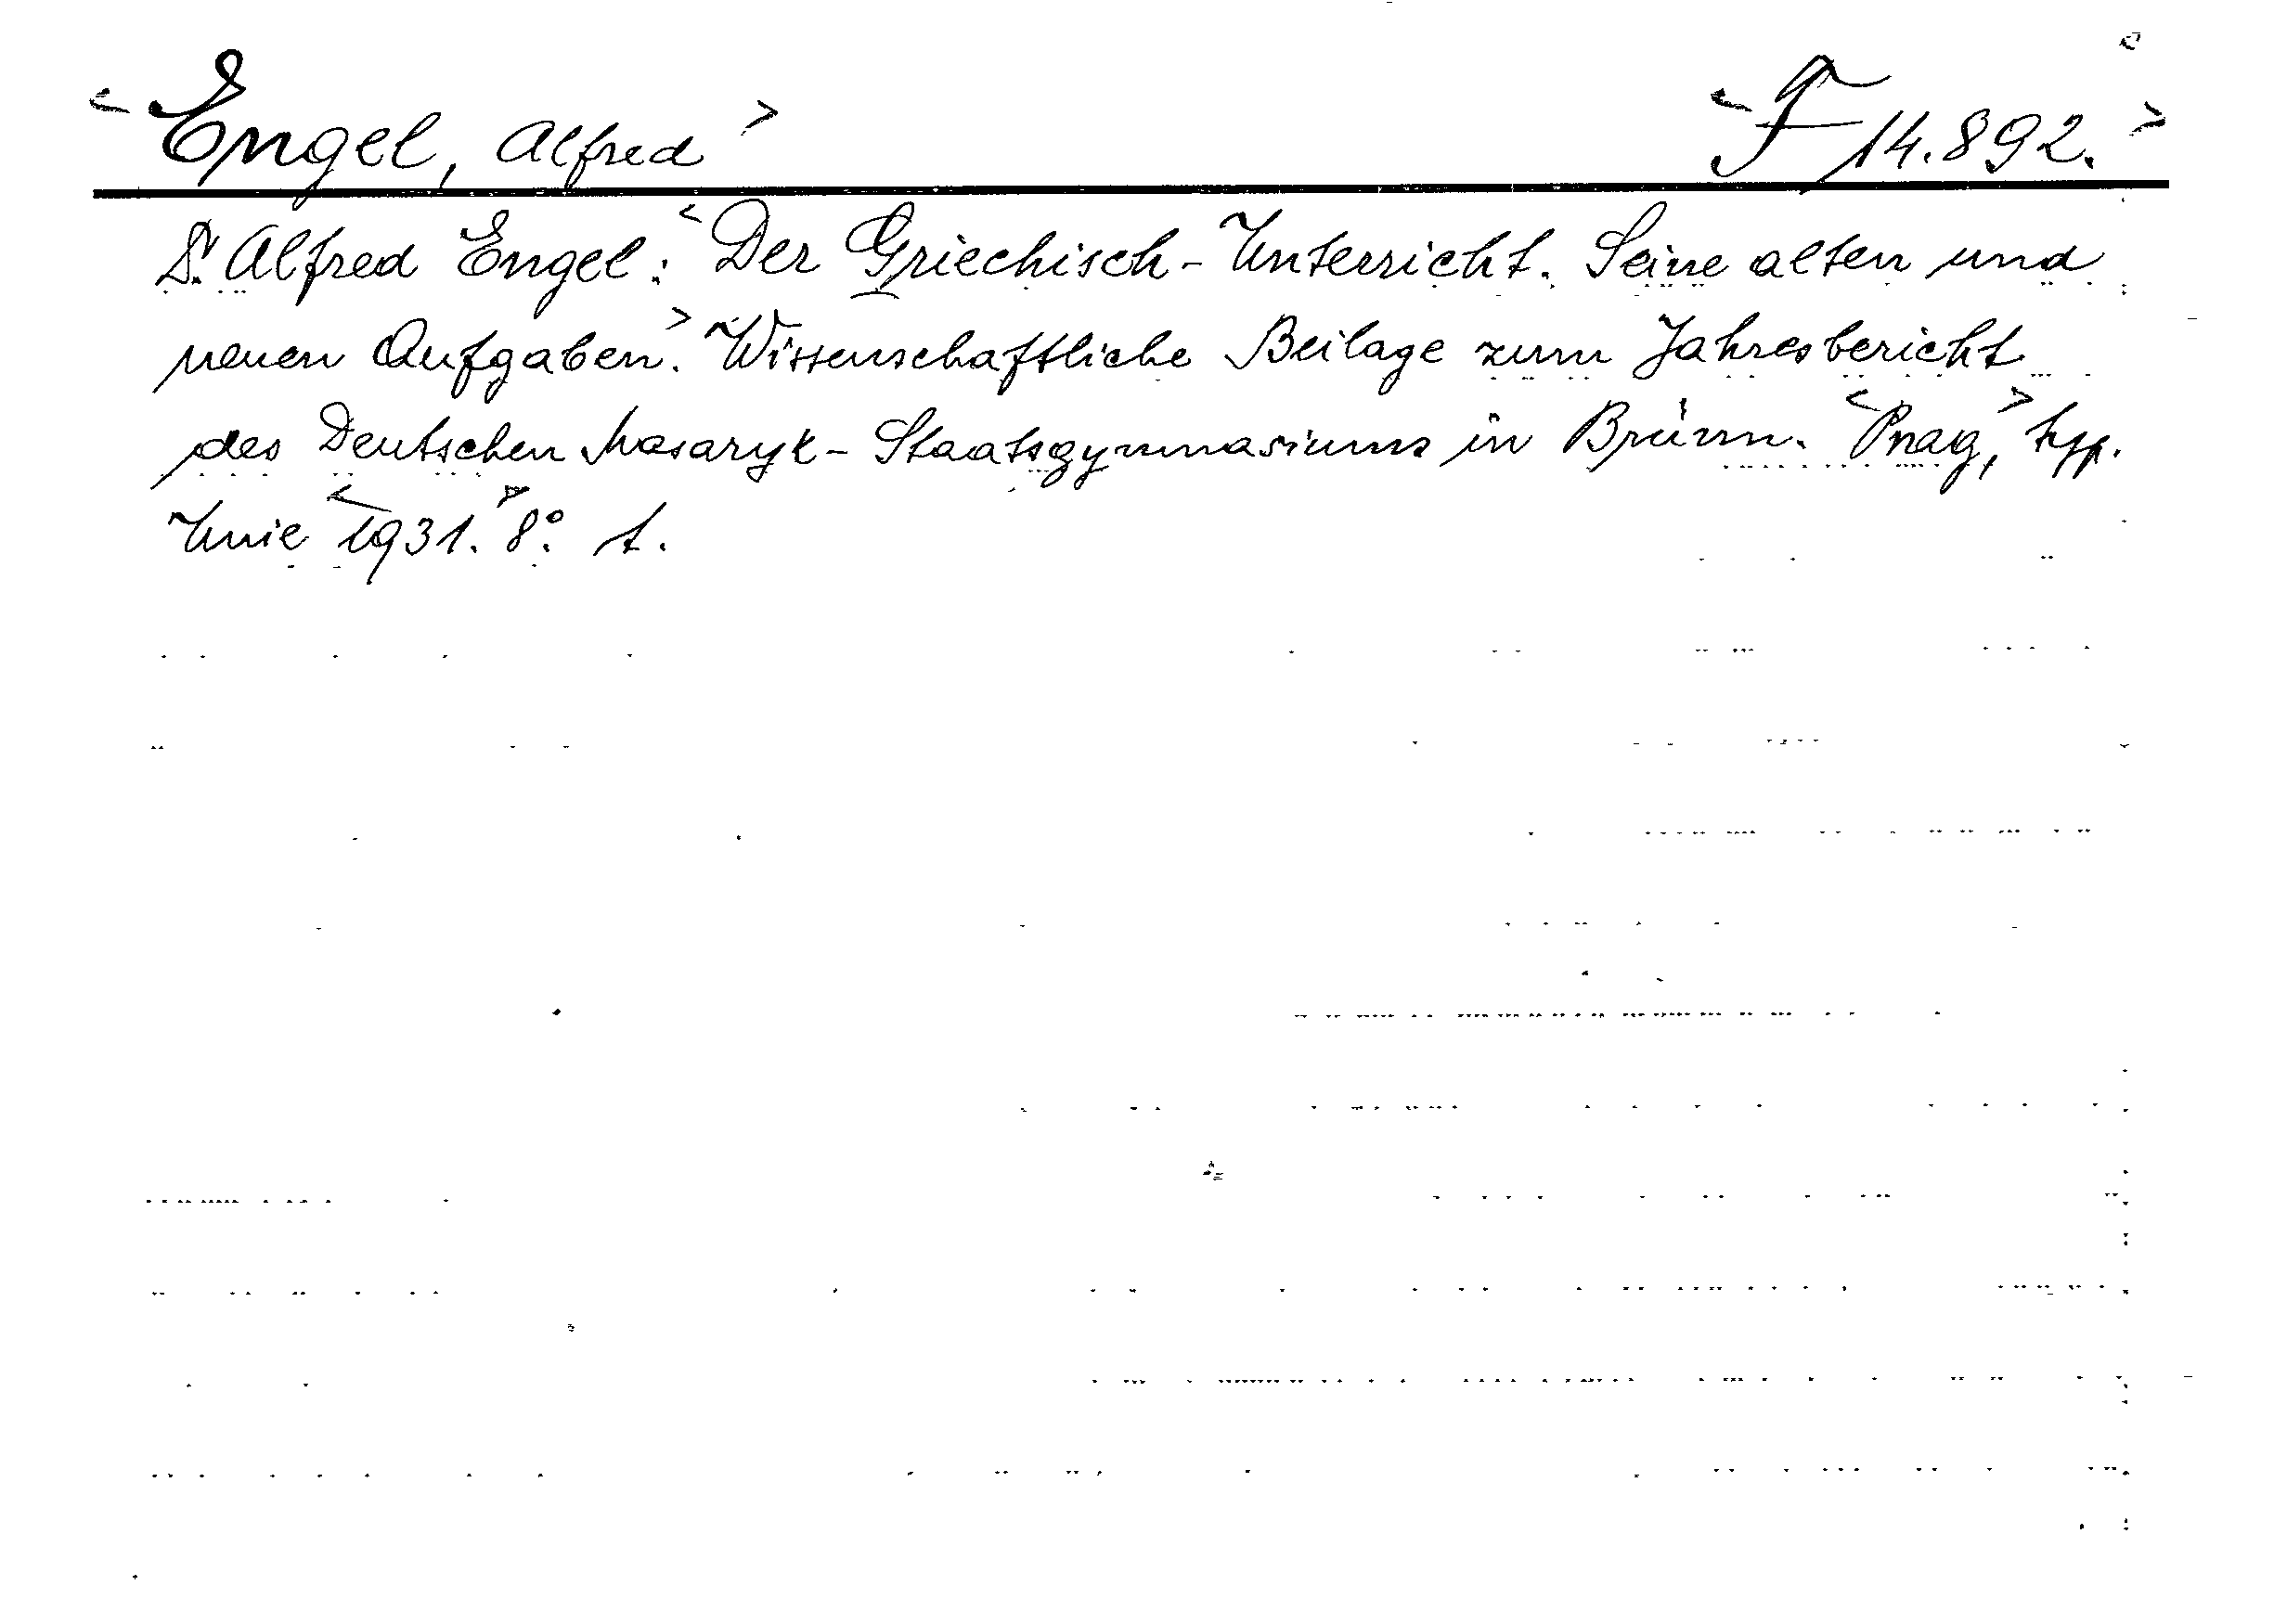 <Engel, Alfred> <F 14.892.>
Dr. Alfred Engel: <Der Griechisch-Unterricht. Seine alten und
neuen Aufgaben>. Wissenschaftliche Beilage zum Jahresbericht
des Deutschen Masaryk-Staatsgymnasiums in Brünn. <Prag>, typ.
Unie <1931.> 8°. 1.